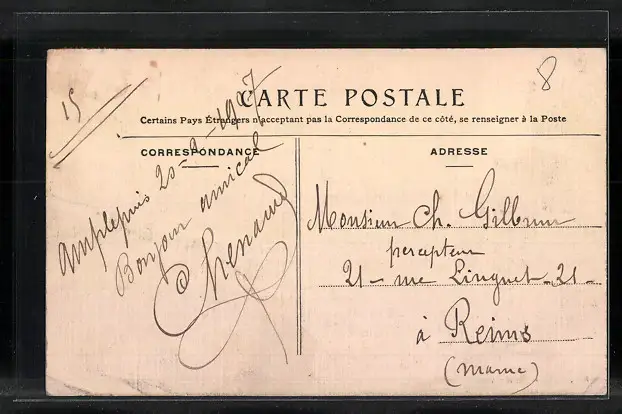 15
8
CARTE POSTALE
Certains Pays Étrangers n'acceptant pas la Correspondance de ce côté, se renseigner à la Poste
CORRESPONDANCE
Amplepuis 20-9-1907
Bonjour amical
Chenaud
ADRESSE
Monsieur Ch. Gilbrun
percepteur
21 - rue Linguet - 21 -
à Reims
(Marne)